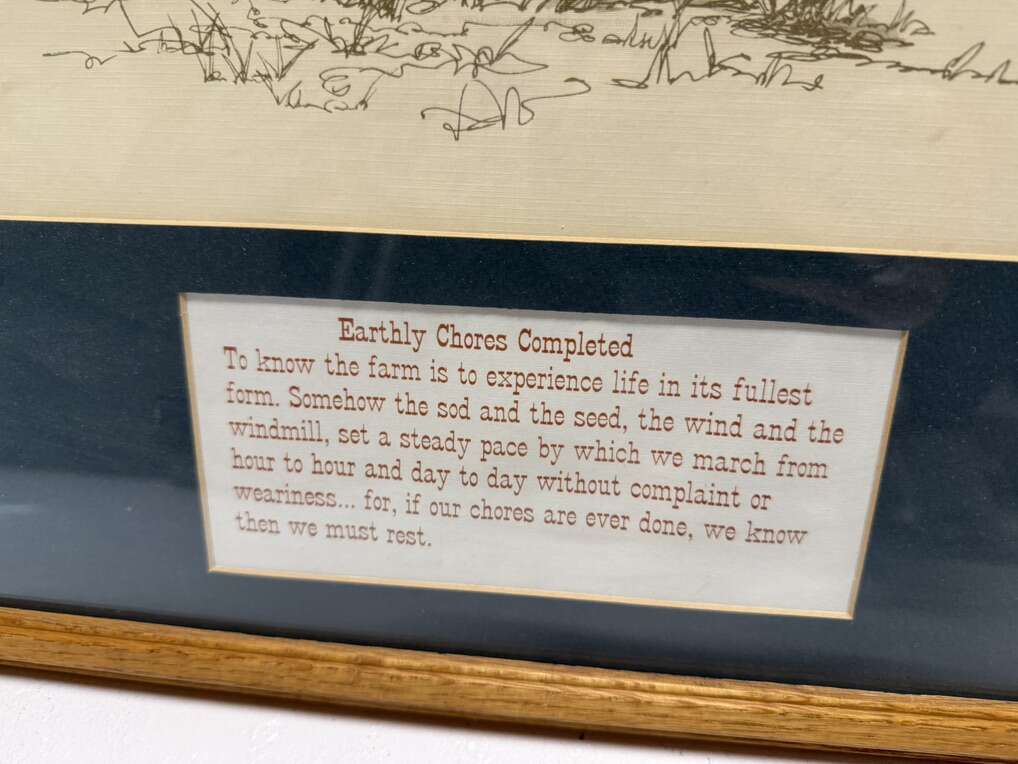 Earthly Chores Completed
To know the farm is to experience life in its fullest
form. Somehow the sod and the seed, the wind and the
windmill, set a steady pace by which we march from
hour to hour and day to day without complaint or
weariness... for, if our chores are ever done, we know
then we must rest.